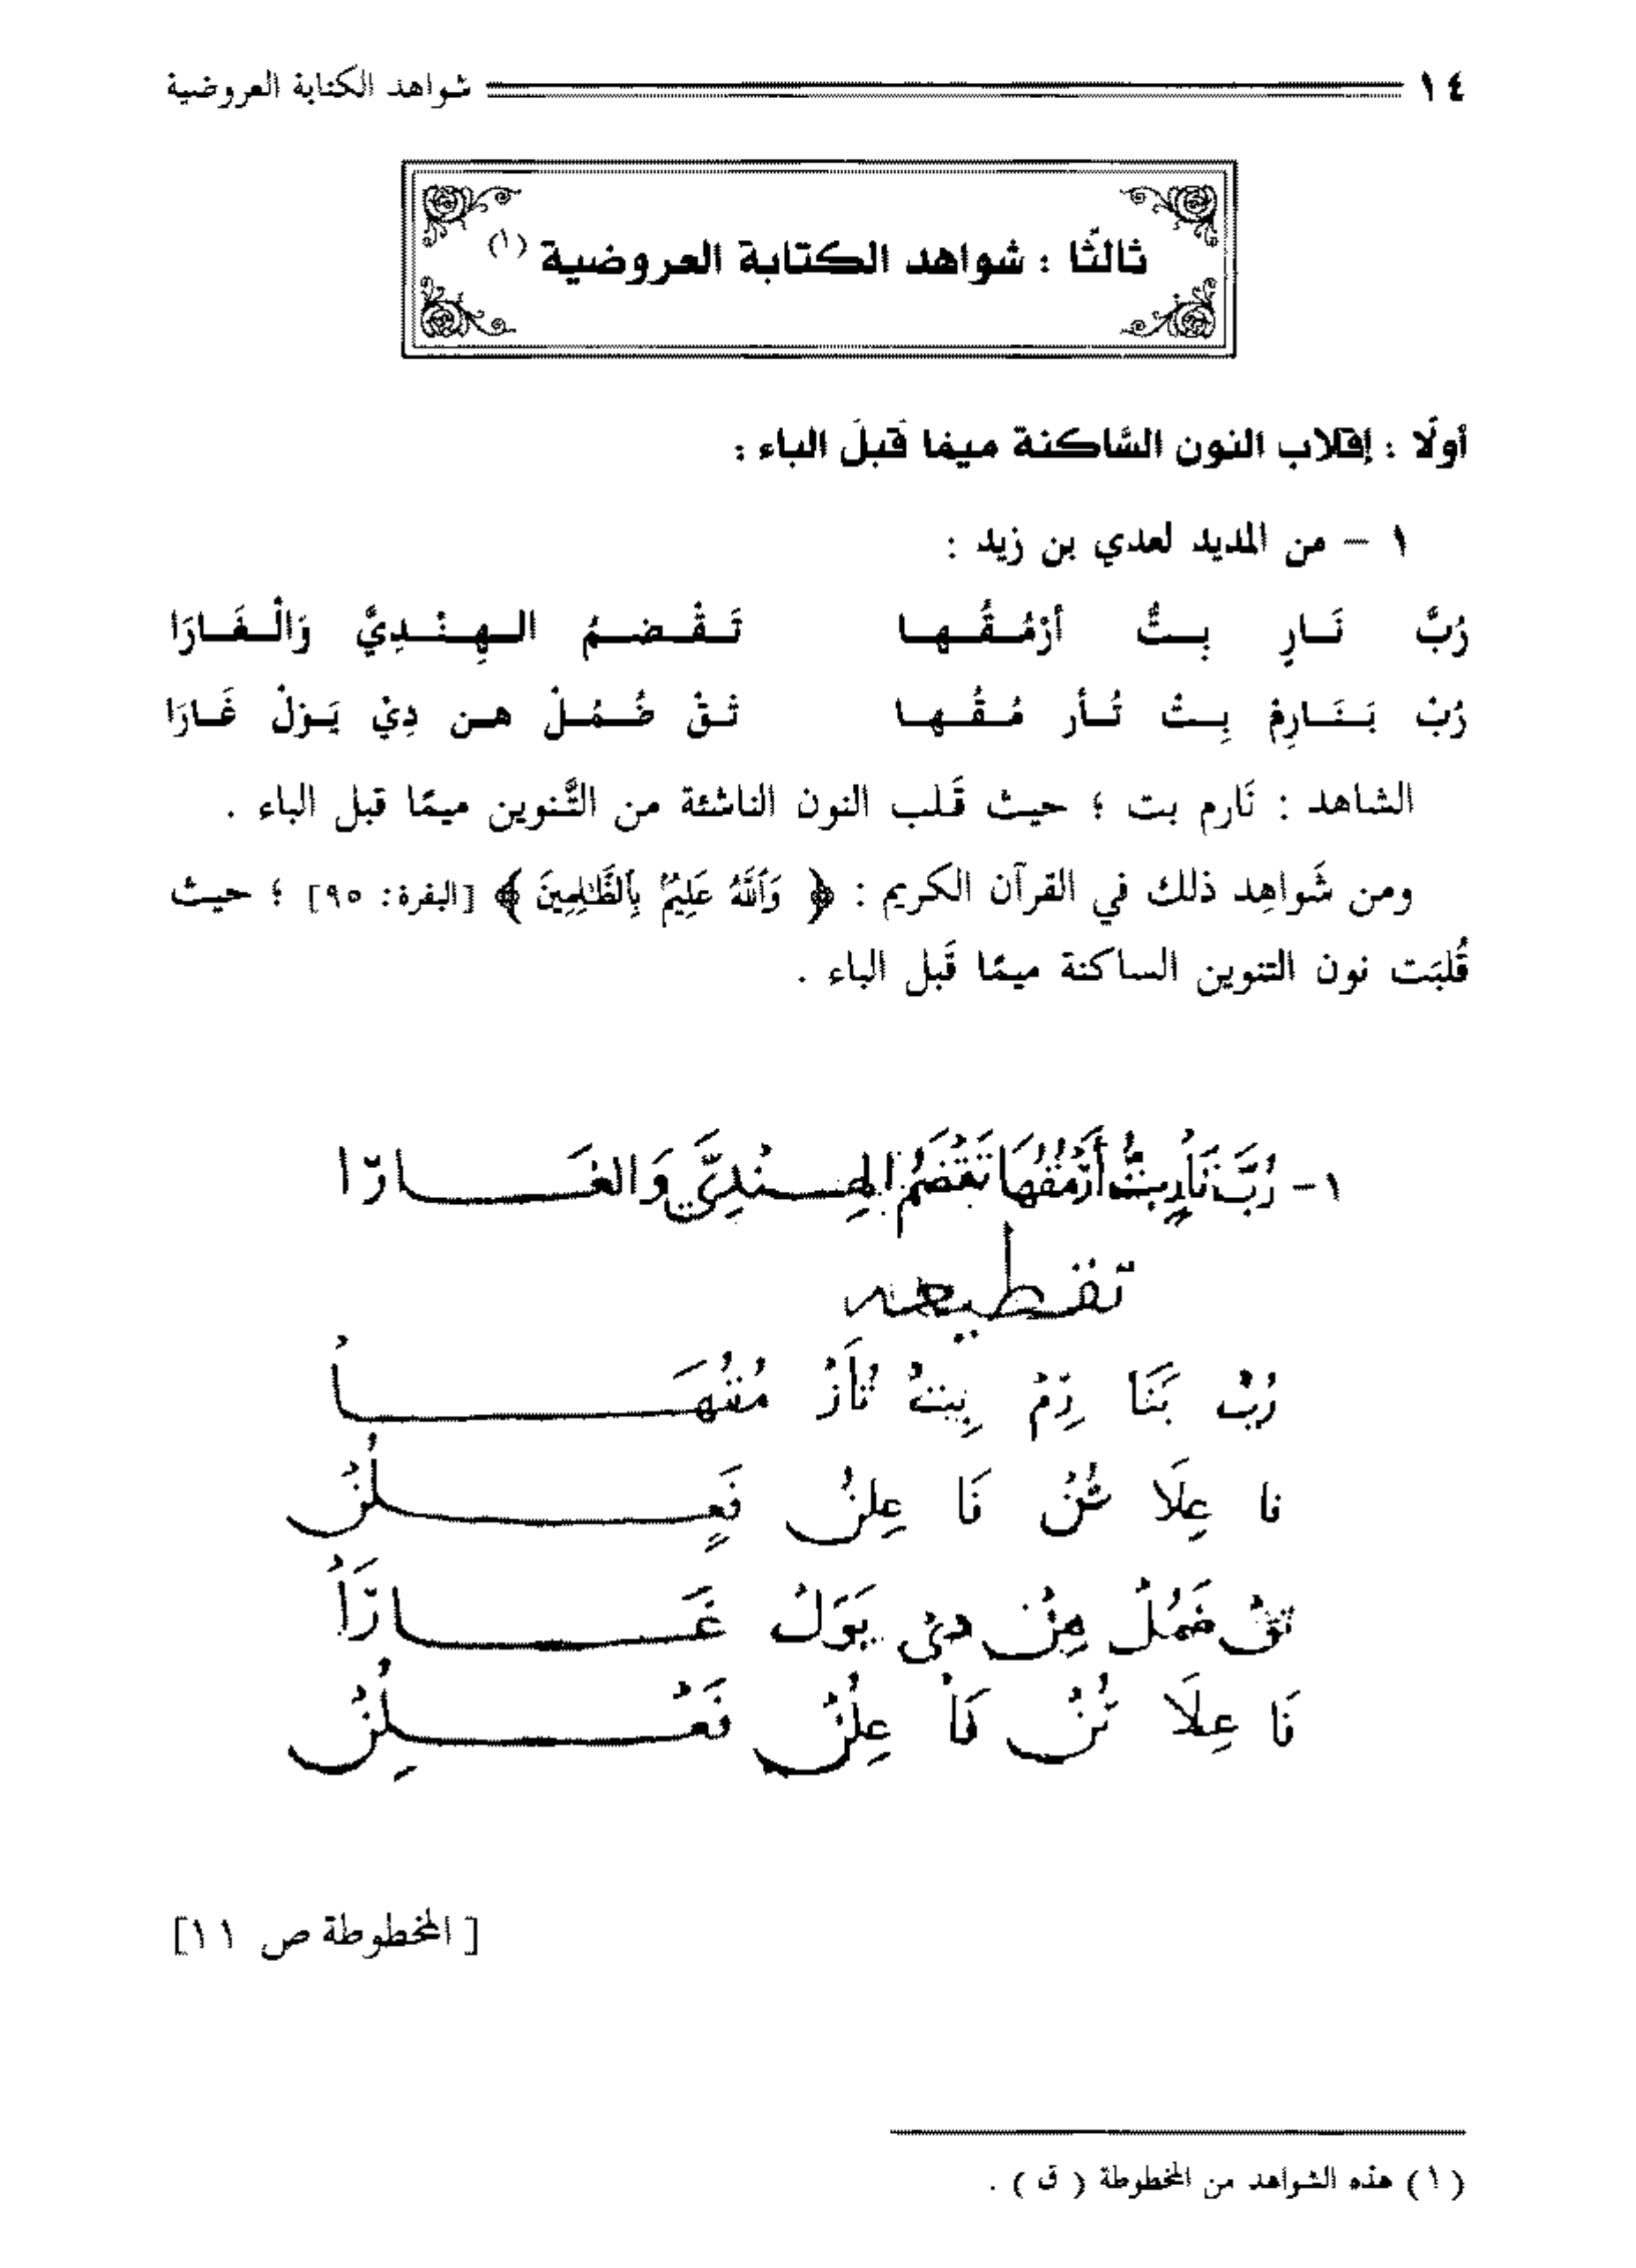 ١٤ شواهد الكتابة العروضية
ثالثًا : شواهد الكتابة العروضية (١)
أولًا : إقلاب النون السَّاكنة ميمًا قَبلَ الباء :
١ – من المديد لعدي بن زيد :
رُبَّ نَـارٍ بِـتُّ أرْمُـقُـهـا تَـقْـضـمُ الـهِـنْـدِيَّ وَالْـغَـارَا
رُبْ بَـنَـارِمْ بِـتْ تُـأر مُـقُـهـا تـقْ ضُـمُـلْ هـن دِيْ يَـوَلْ غَـارَا
الشاهد : نَارم بت ؛ حيث قَـلب النون الناشئة من التَّنوين ميمًا قبل الباء .
ومن شَواهِد ذلك في القرآن الكريم : ﴿ وَٱللَّهُ عَلِيمٌۢ بِٱلظَّٰلِمِينَ ﴾ [البقرة: ٩٥] ؛ حيث
قُلبَت نون التنوين الساكنة ميمًا قَبل الباء .
١- رُبَّ نَارٍ بِتُّ أَرْمُقُهَا تَقْضَمُ الهِـنْدِيَّ وَالغَـارَا
تقطيعه
رُبْ بَنَا رِمْ بِتْ تُأَرْ مُقُهَـا
فا عِلَا تُنْ فَا عِلُنْ فَعِـلُنْ
تقْ ضَمُلْ هِنْ دِيْ يَوَلْ غَـارَاْ
فَا عِلَا تُنْ فَاْ عِلُنْ فَعْـلُنْ
[ المخطوطة ص ١١]
(١) هذه الشواهد من المخطوطة ( ق ) .